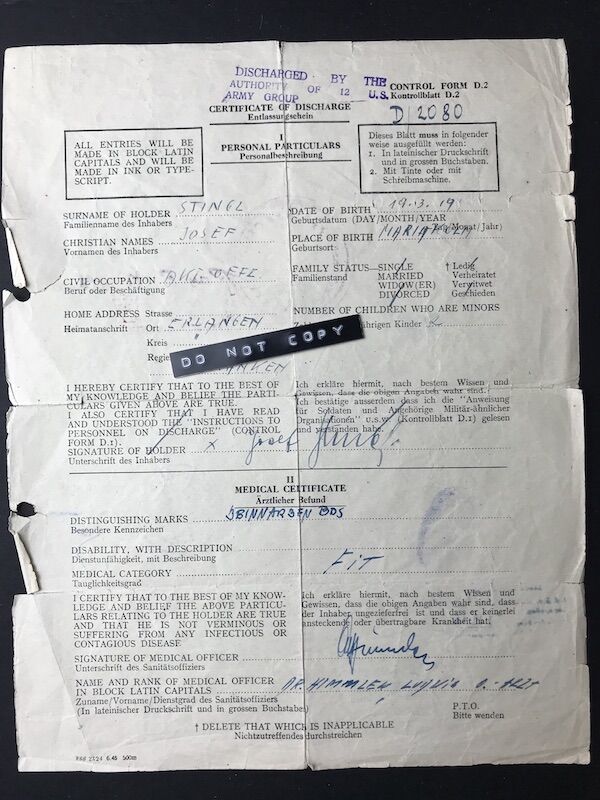 DISCHARGED BY THE
AUTHORITY OF 12 U.S.
ARMY GROUP
CONTROL FORM D.2
Kontrollblatt D.2
CERTIFICATE OF DISCHARGE
Entlassungschein
D 2080
ALL ENTRIES WILL BE
MADE IN BLOCK LATIN
CAPITALS AND WILL BE
MADE IN INK OR TYPE-
SCRIPT.
I
PERSONAL PARTICULARS
Personalbeschreibung
Dieses Blatt muss in folgender
weise ausgefüllt werden:
1. In lateinischer Druckschrift
und in grossen Buchstaben.
2. Mit Tinte oder mit
Schreibmaschine.
SURNAME OF HOLDER STINGL
Familienname des Inhabers
CHRISTIAN NAMES JOSEF
Vornamen des Inhabers
CIVIL OCCUPATION
Beruf oder Beschäftigung
HOME ADDRESS Strasse
Heimatanschrift Ort ERLANGEN
Kreis
DATE OF BIRTH 19.3.19
Geburtsdatum (DAY/MONTH/YEAR
Tag/Monat/Jahr)
PLACE OF BIRTH
Geburtsort
FAMILY STATUS—SINGLE † Ledig
Familienstand MARRIED Verheiratet
WIDOW(ER) Verwitwet
DIVORCED Geschieden
NUMBER OF CHILDREN WHO ARE MINORS
jährigen Kinder 2
DO NOT COPY
I HEREBY CERTIFY THAT TO THE BEST OF
MY KNOWLEDGE AND BELIEF THE PARTI-
CULARS GIVEN ABOVE ARE TRUE.
I ALSO CERTIFY THAT I HAVE READ
AND UNDERSTOOD THE "INSTRUCTIONS TO
PERSONNEL ON DISCHARGE" (CONTROL
FORM D.1).
SIGNATURE OF HOLDER x Josef Stingl
Unterschrift des Inhabers
Ich erkläre hiermit, nach bestem Wissen und
Gewissen, dass die obigen Angaben wahr sind.
Ich bestätige ausserdem dass ich die "Anweisung
für Soldaten und Angehörige Militär-ähnlicher
Organisationen" u.s.w. (Kontrollblatt D.1) gelesen
und verstanden habe.
II
MEDICAL CERTIFICATE
Ärztlicher Befund
DISTINGUISHING MARKS
Besondere Kennzeichen
DISABILITY, WITH DESCRIPTION
Dienstunfähigkeit, mit Beschreibung
FIT
MEDICAL CATEGORY
Tauglichkeitsgrad
I CERTIFY THAT TO THE BEST OF MY KNOW-
LEDGE AND BELIEF THE ABOVE PARTICU-
LARS RELATING TO THE HOLDER ARE TRUE
AND THAT HE IS NOT VERMINOUS OR
SUFFERING FROM ANY INFECTIOUS OR
CONTAGIOUS DISEASE
Ich erkläre hiermit, nach bestem Wissen und
Gewissen, dass die obigen Angaben wahr sind, dass
der Inhaber ungezieferfrei ist und dass er keinerlei
ansteckende oder übertragbare Krankheit hat.
SIGNATURE OF MEDICAL OFFICER
Unterschrift des Sanitätsoffiziers
NAME AND RANK OF MEDICAL OFFICER
IN BLOCK LATIN CAPITALS DR. HIMMLER LUDWIG
Zuname/Vorname/Dienstgrad des Sanitätsoffiziers
(In lateinischer Druckschrift und in grossen Buchstaben)
P.T.O.
Bitte wenden
† DELETE THAT WHICH IS INAPPLICABLE
Nichtzutreffendes durchstreichen